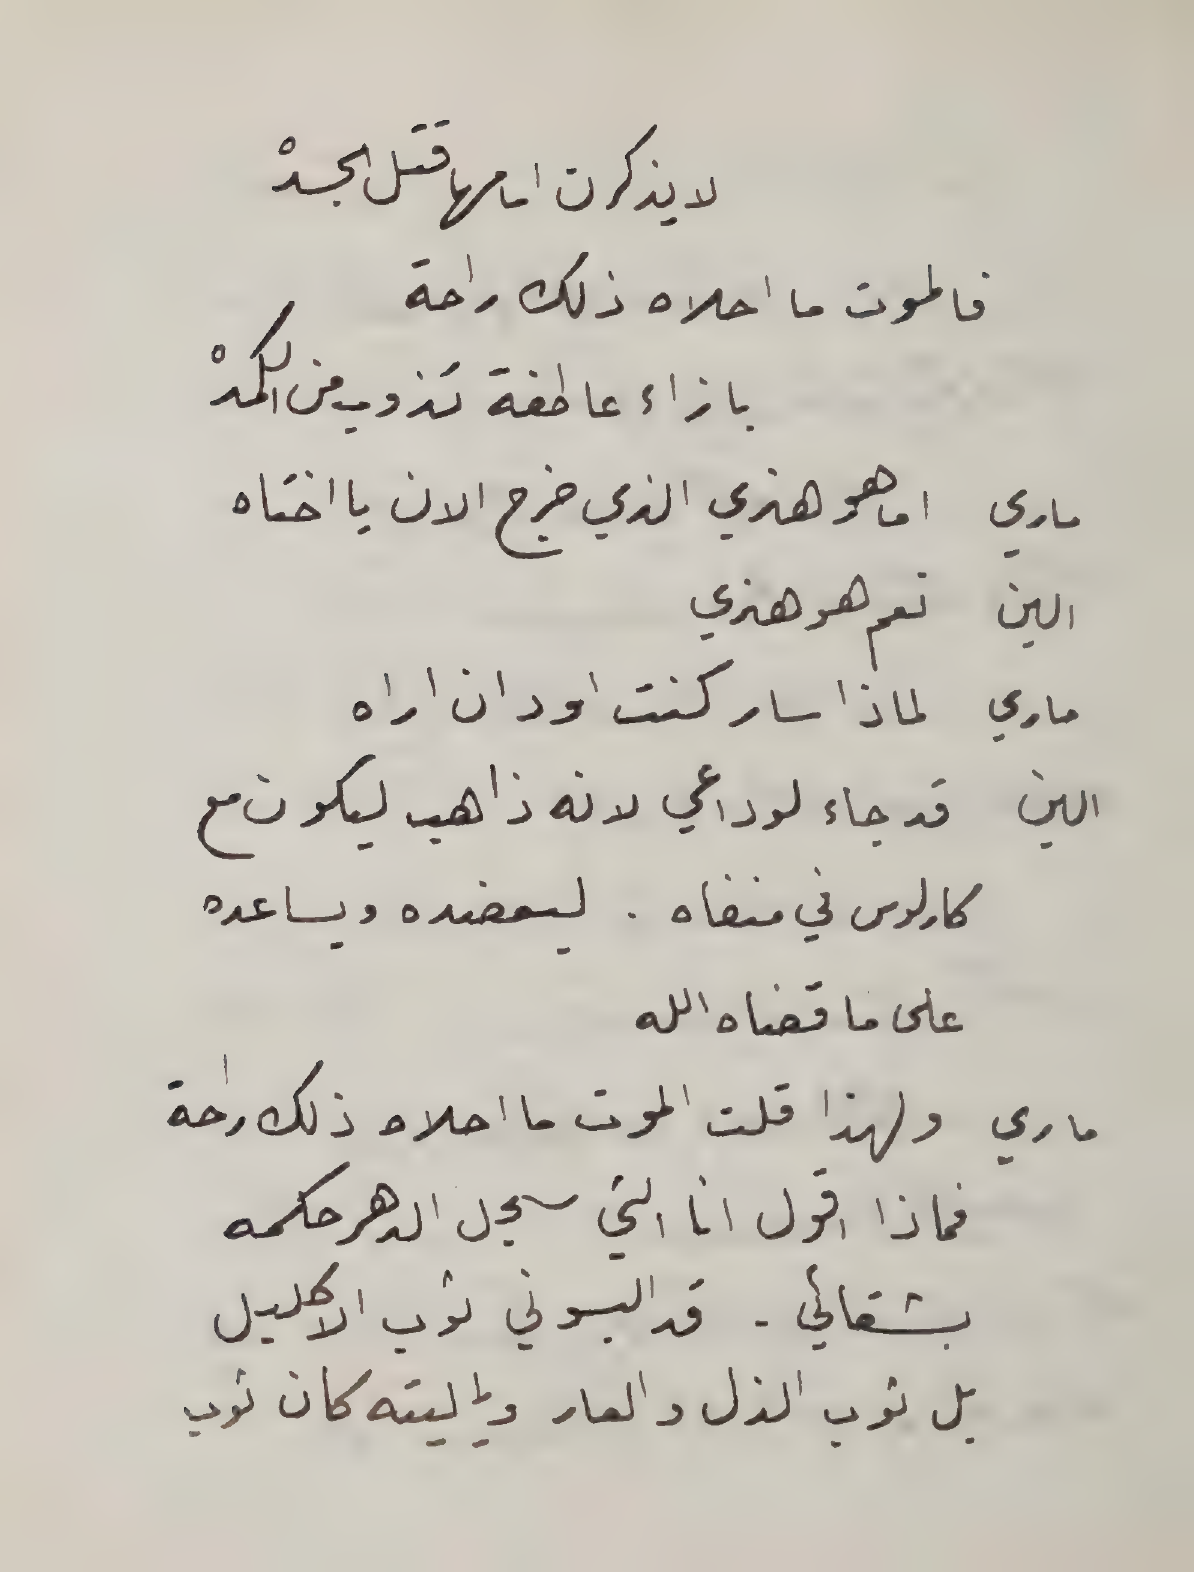 لا يذكرن امامها قتل الجسدْ
فالموت ما احلاه ذلك راحة
بازاء عاطفة تذوب من الكمدْ
ماري اما هو هنري الذي خرج الان يا اختاه
الين نعم هو هنري
ماري لماذا سار كنت اود ان اراه
الين قد جاء لوداعي لانه ذاهب ليكون مع
كارلوس في منفاه . ليعضده ويساعده
على ما قضاه الله
ماري ولهذا قلت الموت ما احلاه ذلك راحة
فماذا اقول انا التي سجل الدهر حكمه
بشقائي - قد البسوني ثوب الاكليل
بل ثوب الذل والعار ويا ليته كان ثوب